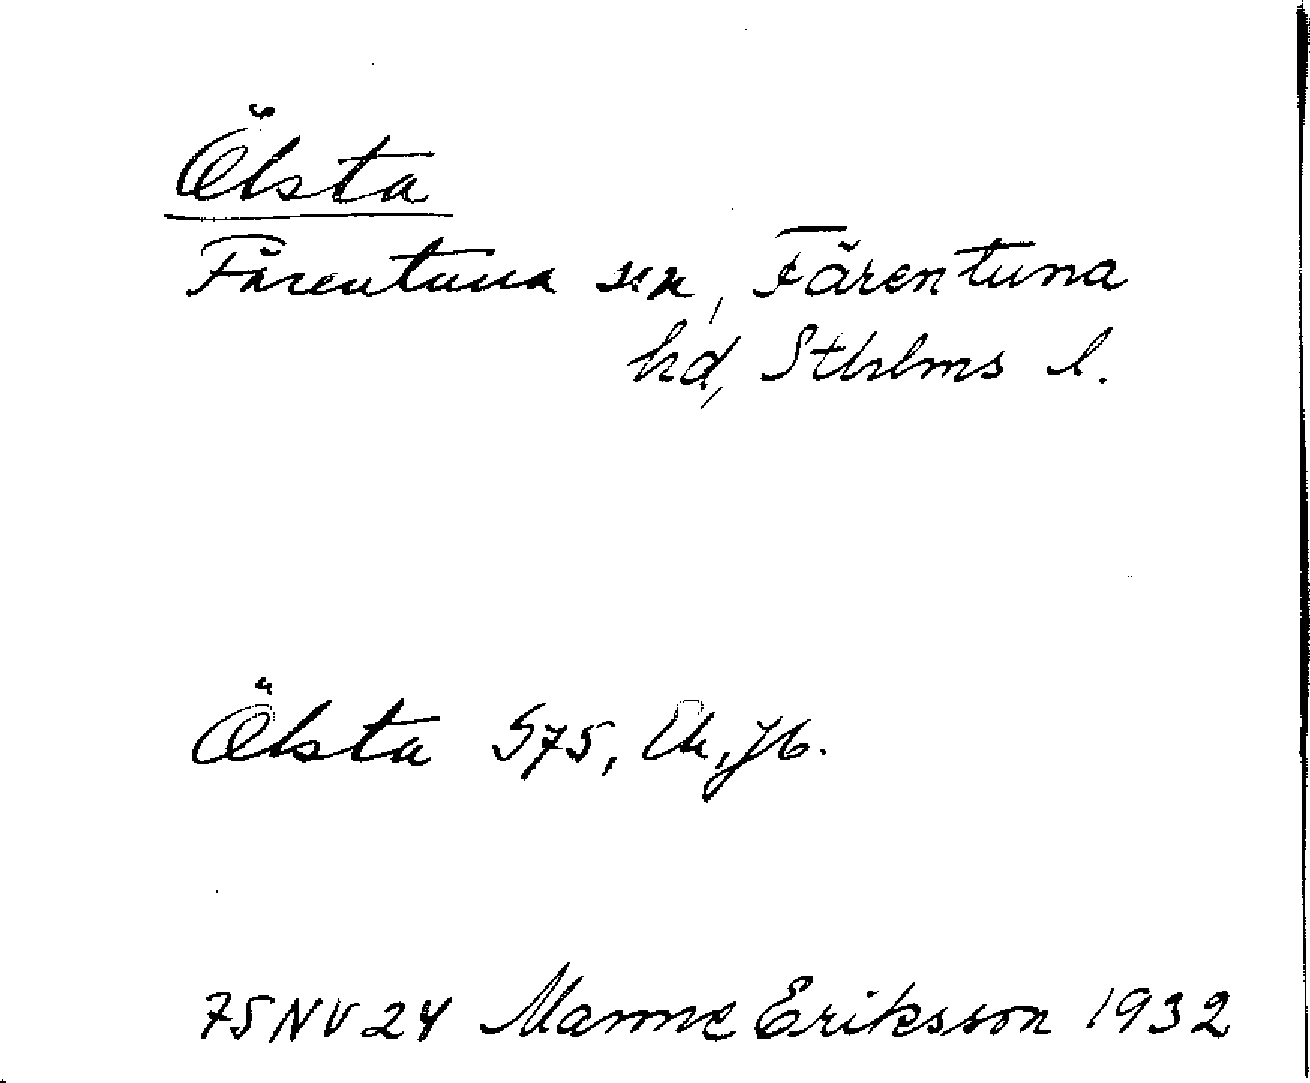 Ölsta
Färentuna skn, Färentuna
hd, Sthlms l.
Ölsta S75, Ek, Jb.
75NV24 Manne Eriksson 1932